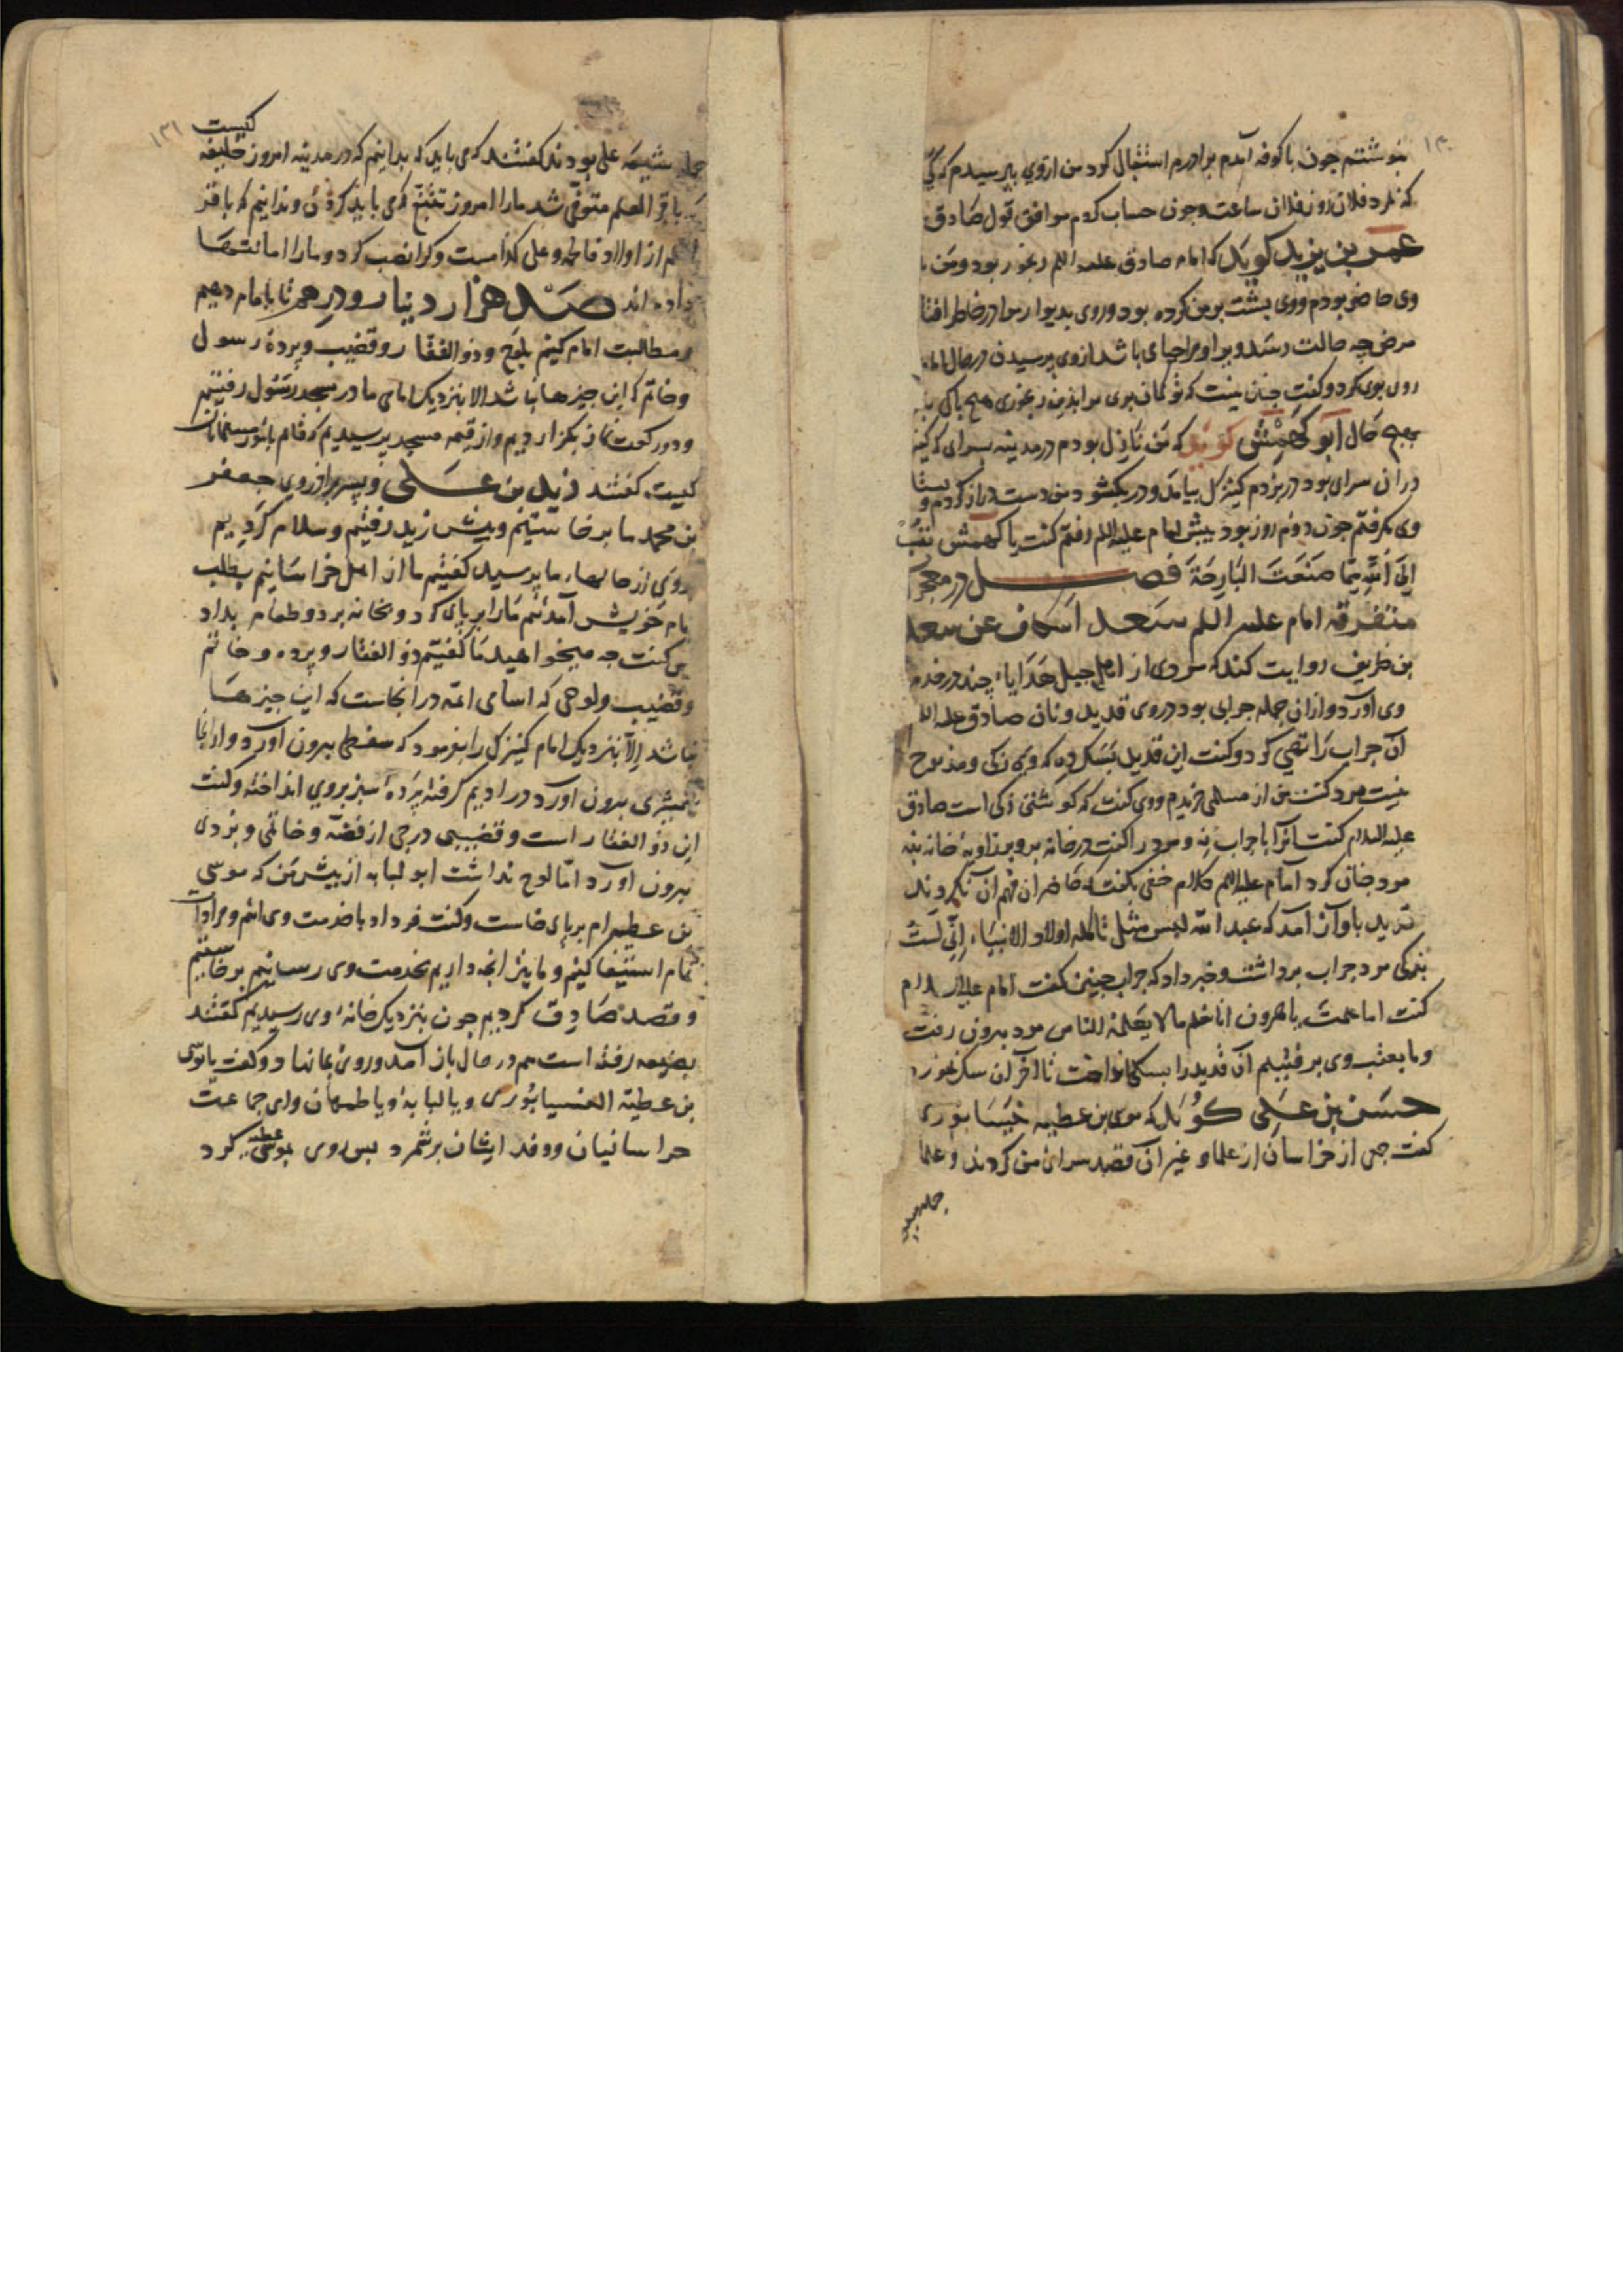 ۱۳۰
بنوشتم چون با کوفه آمدم برادرم استقبال کرد من ازوی بپرسیدم که کی
که نمرد فلان روز فلان ساعت و چون حساب کردم موافق قول صادق
عمر بن یزید کوید که امام صادق علیه السلم رنجور بود و من
وی حاضر بودم و وی پشت بر من کرده بود و روی بدیوار مرا در خاطر افتا
مرض چه حالت رسد و برا و مرا جای باشد از وی پرسیدن در حال امام
روی بوی کرد و کفت چنان نیست که تو کمان بری مرا بدین رنجوری هیچ باکی
بهیچ حال ابو کهمش کوید که من نازل بودم در مدینه بسرای که کنیز
در آن سرای بود در بزدم کنیزک بیامد و در بکشود من دست دراز کردم و پستا
وی بکرفتم چون دوم روز بود پیش امام علیه السلم رفتم کفت یا کهمش تب
الی الله مما صنعت البارحة فصل در معجزا
متفرقه امام علیه السلم سعد اسکاف عن سعد
بن طریف روایت کند که مردی از اهل جبل هدایاء چند در خدم
وی آورد و ازان جمله جرابی بود دروی قدید و نان صادق علیه السلم
آن جراب را تهی کرد و کفت این قدید بسک ده که وی زکی و مذبوح
نیست مرد کفت من از مسلمی خریدم و وی کفت که کوشتی زکی است صادق
علیه السلام کفت آنرا با جراب نه و مرد را کفت در خانه بر و بر زاویه خانه بنه
مرد چنان کرد امام علیه السلم کلام خفی بکفت که حاضران فهم آن نکردند
قدید باواز آمد که عبد الله لیس مثلی تاکله اولاد الانبیاء انی لست
بذکی مرد جراب برداشت و خبر داد که جراب چنین کفت امام علیه السلام
کفت اما علمت یا هرون انا نعلم مالا یعلمه الناس مرد بیرون رفت
و ما بعقب وی برفتیم آن قدید را بسکی انداخت تا آخر آن سک بخورد
حسن بن علی کوید که موسی بن عطیه نیسابوری
کفت جمعی از خراسان از علما و غیر آن قصد سرای من کردند و علما
جمله شیعه
۱۳۱
جمله شیعه علی بودند کفتند که می باید که بدانیم که در مدینه امروز خلیفه کیست
باقر العلم متوفی شد ما را امروز تتبع می باید کردن و ندانیم که باقر
از اولاد فاطمه و علی کدامست و کرا نصب کرد و ما را امانتها
داده اند صد هزار دینار و درهم تا بامام دهیم
و مطالبت امام کنیم بلوح و ذوالفقار و قضیب و برده رسول
و خاتم که این چیزها نباشد الا بنزدیک امامی ما در مسجد رسول رفتیم
و دو رکعت نماز بکزاردیم و از قیمه مسجد پرسیدیم که قایم بامور مسلمانان
کیست کفتند زید بن علی و پسر برادر وی جعفر
بن محمد ما برخاستیم و پیش زید رفتیم و سلام کردیم
وی از حالهاء ما پرسید کفتیم ما از اهل خراسانیم بطلب
امام خویش آمدیم ما را بر پای کرد و بخانه برد و طعام بداد
پس کفت چه میخواهید ما کفتیم ذوالفقار و برده و خاتم
و قضیب و لوحی که اسامی ائمه در آنجاست که این چیزها
نباشد الا بنزدیک امام کنیزک را بفرمود که سفطی بیرون آورد و ازانجا
شمشیری بیرون آورد در ادیم کرفته پرده سبز بروی انداخته و کفت
این ذوالفقار است و قضیبی درجی از فضه و خاتمی و بردی
بیرون آورد اما لوح نداشت ابو لبابه از پیش من که موسی
بن عطیه ام بر پای خاست و کفت فردا با خدمت وی آئیم و مرادات
تمام استیفا کنیم و ما نیز آنچه داریم بخدمت وی رسانیم برخاستیم
و قصد صادق کردیم چون بنزدیک خانه وی رسیدیم کفتند
بضیعه رفته است هم در حال باز آمد و روی بما نهاد و کفت یا موسی
بن عطیة النیسابوری و یا لبابه و یا طهمان و ای جماعت
خراسانیان و وفد ایشان برشمرد پس روی بموسی عطیه کرد